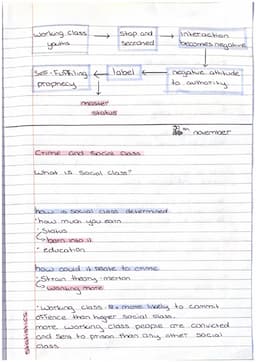 working class youths → stop and searched → interaction becomes negative
self-fulfilling prophecy ← label ← negative attitude to authority
master status
november
Crime and Social Class
What is social class?
how is social class determined
· how much you earn
· Status
↳ born into it
· education
how could it relate to crime
· Strain theory - merton
↳ wanting more
· Working class more likely to commit
offence than higher social class.
more working class people are convicted
and sent to prison than any other social
class
statistics